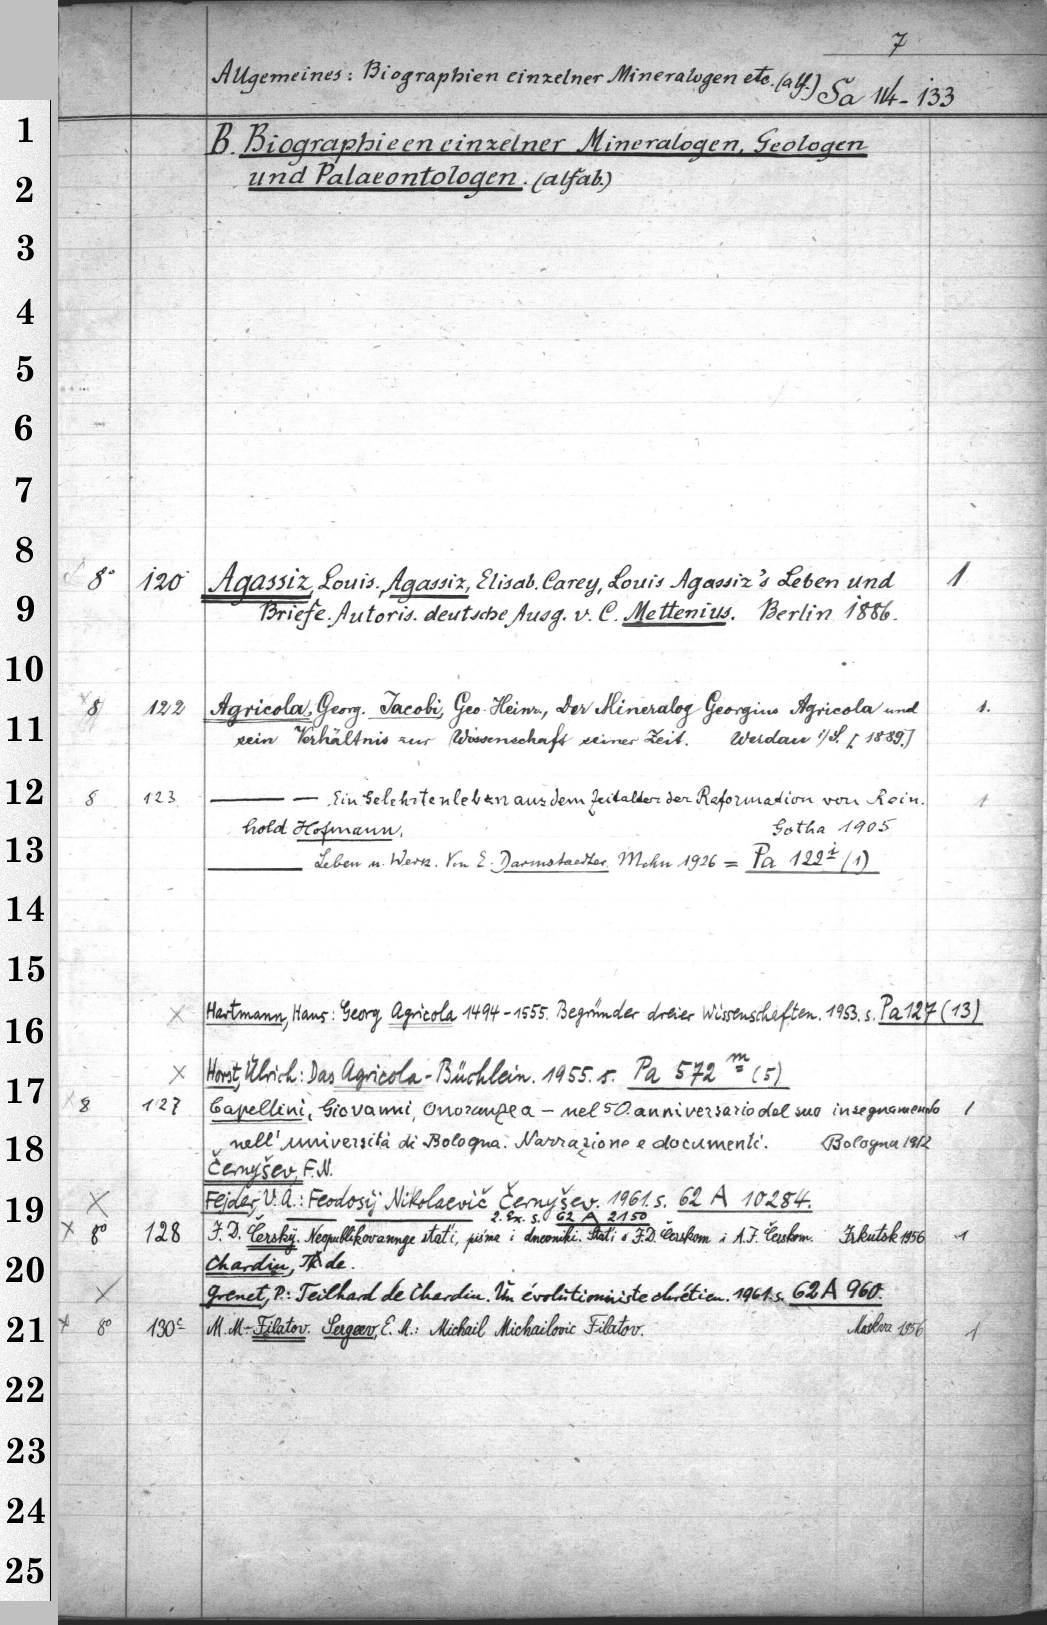 7
Allgemeines: Biographien einzelner Mineralogen etc. (alf.) Sa 114-133
1
B. Biographieen einzelner Mineralogen, Geologen
2
und Palaeontologen. (alfab.)
3
4
5
6
7
8
8° 120 Agassiz, Louis. Agassiz, Elisab. Carey, Louis Agassiz's Leben und 1
9
Briefe. Autoris. deutsche Ausg. v. C. Mettenius. Berlin 1886.
10
8 122 Agricola, Georg. Jacobi, Geo. Heinr., Der Mineralog Georgius Agricola und 1.
11
sein Verhältnis zur Wissenschaft seiner Zeit. Werdau i/S. [1889.]
12
8 123 —— — Ein Gelehrtenleben aus dem Zeitalter der Reformation von Rein- 1
hold Hofmann. Gotha 1905
13
—— Leben u. Werk. Von E. Darmstaedter. Mchn 1926 = Pa 122 i (1)
14
15
× Hartmann, Hans: Georg Agricola 1494-1555. Begründer dreier Wissenschaften. 1953. s. Pa 127 (13)
16
× Horst, Ulrich: Das Agricola-Büchlein. 1955. s. Pa 572 m (5)
17
× 8 127 Capellini, Giovanni, Onoranze a – nel 50. anniversario del suo insegnamento 1
18
nell' università di Bologna. Narrazione e documenti. Bologna 1912
Černyšev, F.N.
19
× Fejder, V.A.: Feodosij Nikolaevič Černyšev. 1961. s. 62 A 10284.
2. Ex. s. 62 A 2150
× 8° 128 I. D. Čerskij. Neopublikovannye stat'i, pis'ma i dnevniki. Stat'i o I.D. Čerskom i A.I. Čerskom. Irkutsk 1956 1
20
Chardin, T. de.
× Grenet, P.: Teilhard de Chardin. Un évolutioniste chrétien. 1961. s. 62 A 960.
21
× 8° 130c M. M. Filatov. Sergeev, E. M.: Michail Michailovic Filatov. Moskva 1956 1
22
23
24
25